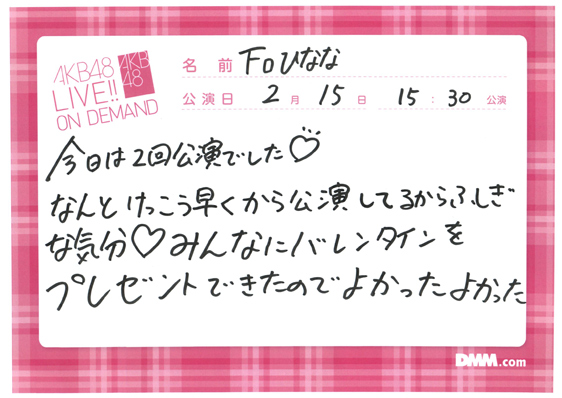 AKB48
LIVE!!
ON DEMAND
AKB
48
名 前 Foひなな
公演日 2月 15日 15:30 公演
今日は2回公演でした♡
なんとけっこう早くから公演してるからふしぎ
な気分♡みんなにバレンタインを
プレゼントできたのでよかったよかった
DMM.com